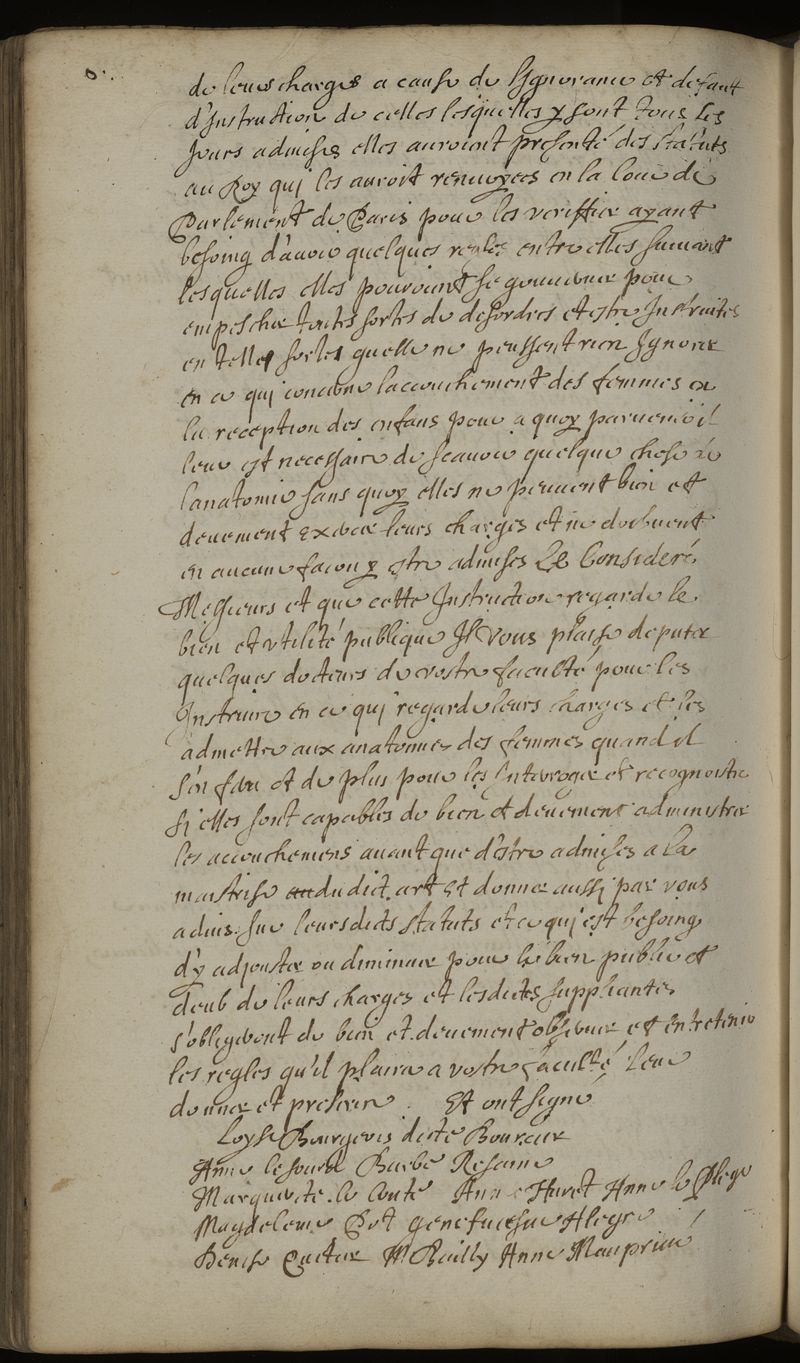 de leurs charges a cause de l'Ignorance et defaut
d'Instruction de celles lesquelles y sont tous les
Jours admises elles auroient presenté des statuts
au Roy qui les auroit renvoyees en la Cour de
Parlement de Paris pour les veriffier ayant
besoing d'avoir quelques regles entre elles suivant
lesquelles elles pourroient se gouverner pour
empescher toutes sortes de desordres et estre Instruites
en telles sortes quelle ne peussent rien Ignorer
en ce qui concerne laccouchement des femmes ou
la reception des enfans pour a quoy parvenir il
leur est necessaire de scavoir quelque chose de
lanatomie sans quoy elles ne peuvent bien et
deuement exercer leurs charges et ne doibvent
en aucune facon y estre admises Ce Consideré
Messieurs et que cette Instruction regarde le
bien et utilité publique Il vous plaise deputer
quelques docteurs de vostre faculté pour les
Instruire en ce qui regarde leurs charges et les
admettre aux anatomies des femmes quand il
s'en fera et de plus pour les Interroger et recognoistre
si elles sont capables de bien et deuement administrer
les accouchemens avant que d'estre admises a la
maistrise dudict art Et donner aussi par vous
advis sur leursdicts statuts et ce qui est besoing
d'y adjouster ou diminuer pour le bien public et
deub de leurs charges et lesdictes suppliantes
s'obligeront de bien et deuement observer et entretenir
les regles qu'il plaira a vostre faculté leur
donner et prescrire. Et ont signé
Loyse Bourgeois dicte Boursier
Anne le sourd Barbe
Marguerite le Conte Anne Huret Anne le
Magdeleine Pot Allegre
Denise M Railly Anne